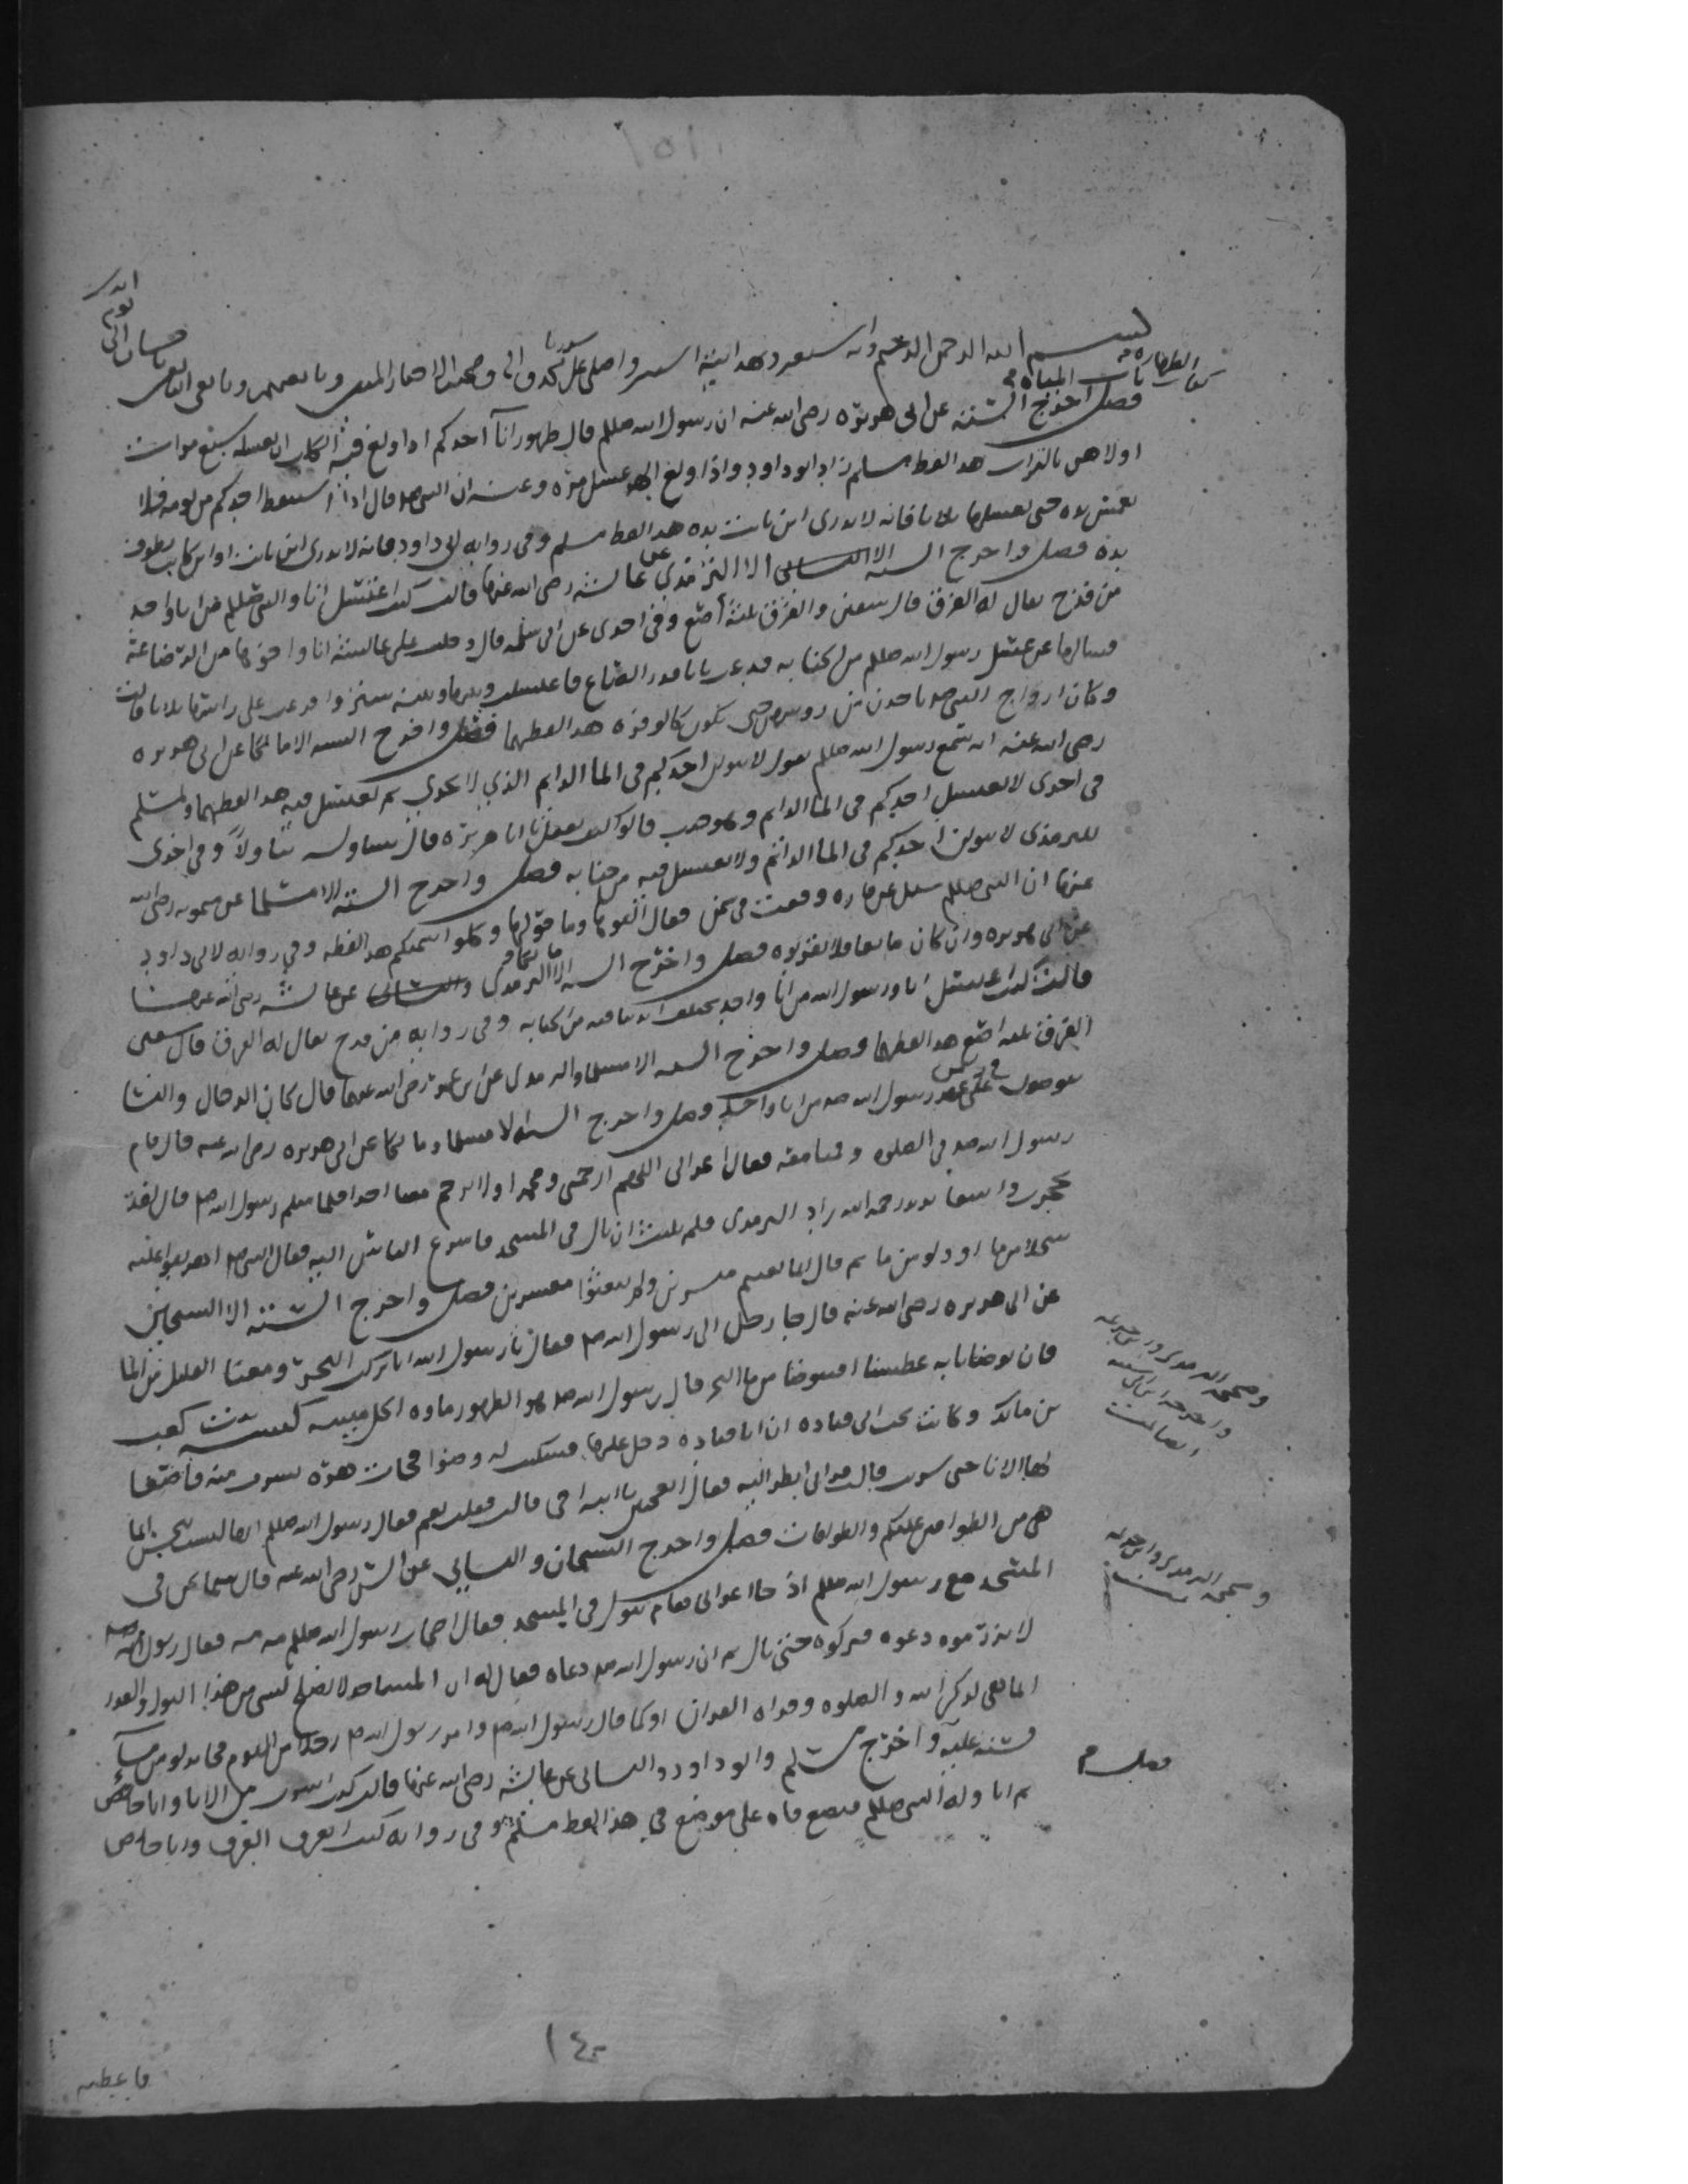 ١٥١
بسم الله الرحمن الرحيم وبه استعين
كتاب الطهارة
باب المياه
فصل اخرج الستة عن ابي هريرة رضي الله عنه ان رسول الله صللم قال طهور انآ احدكم اذا ولغ فيه الكلب ان يغسله سبع مرات
اولاهن بالتراب هذا لفظ مسلم زاد ابو داود واذا ولغ الهر غسل مرة وعنه ان النبي صلم قال اذا استيقظ احدكم من نومه فلا
يغمس يده حتى يغسلها ثلاثا فانه لا يدري اين باتت يده هذا لفظ مسلم وفي رواية لابي داود فانه لا يدري اين باتت او اين كانت تطوف
يده فصل واخرج الستة الا الترمذي عن عائشة رضي الله عنها قالت كنت اغتسل انا والنبي صللم من انا واحد
من قدح يقال له الفرق قال سفين والفرق ثلثة اصع وفي اخرى عن ابي سلمه قال دخلت على عائشة انا واخوها من الرضاعة
فسالها عن غسل رسول الله صللم من الجنابه فدعت بانا قدر الصاع فاغتسلت وبيننا وبينها ستر وافرغت على راسها ثلاثا قالت
وكان ازواج النبي صلم ياخذن من روسهن حتى تكون كالوفره هذا لفظهما فصل واخرج الستة الا مالكا عن ابي هريره
رضي الله عنه انه سمع رسول الله صللم يقول لا يبولن احدكم في الما الدايم الذي لا يجري ثم يغتسل فيه هذا لفظهما ولمسلم
في اخرى لا يغتسل احدكم في الما الدايم وهو جنب قالوا كيف يفعل يا ابا هريرة قال يتناوله تناولاً وفي اخرى
للترمذي لا يبولن احدكم في الما الدائم ولا يغتسل فيه من جنابه فصل واخرج الستة الا مسلما عن ميمونه رضي الله
عنها ان النبي صللم سيل عن فاره وقعت في سمن فقال القوها وما حولها وكلوا سمنكم هذا لفظه وفي رواية لابي داود
عن ابي هريره وان كان مايعا فلا تقربوه فصل واخرج الستة الا الترمذي عن عائشة رضي الله عنها
قالت كنت اغتسل انا ورسول الله من انا واحد تختلف ايدينا فيه من الجنابه وفي رواية من قدح يقال له الفرق قال سفين
الفرق ثلثة اصع هذا لفظهما فصل واخرج الستة الا مسلما والترمذي عن ابن عمر رضي الله عنهما قال كان الرجال والنسا
يتوضون في زمن رسول الله صلم من انا واحد فصل واخرج الستة الا مسلما ومالكا عن ابي هريره رضي الله عنه قال قام
رسول الله صلم في الصلوه وقمنا معه فقال اعرابي اللهم ارحمني ومحمدا ولا ترحم معنا احدا فلما سلم رسول الله صلم قال لقد
تحجرت واسعا يريد رحمه الله زاد الترمذي فلم يلبث ان بال في المسجد فاسرع الناس اليه فقال النبي صلم اهريقوا عليه
سجلا من ما او دلوا من ما ثم قال انما بعثتم ميسرين ولم تبعثوا معسرين فصل واخرج الستة الا الشيخين
عن ابي هريره رضي الله عنه قال جا رجل الى رسول الله صلم فقال يا رسول الله انا نركب البحر ومعنا القليل من الما
فان توضانا به عطشنا افنتوضا من ما البحر قال رسول الله صلم هو الطهور ماوه الحل ميتته كبشه بنت كعب
بن مالك وكانت تحت ابي قتاده ان ابا قتاده دخل عليها فسكبت له وضوا فجات هرة تشرب منه فاصغا
لها الانا حتى شربت قالت فراني انظر اليه فقال اتعجبين يا ابنة اخي قالت فقلت نعم فقال رسول الله صللم انها ليست بنجس انما
هي من الطوافين عليكم والطوافات فصل واخرج الشيخان والنسائي عن انس رضي الله عنه قال بينما نحن في
المسجد مع رسول الله صللم اذ جا اعرابي فقام يبول في المسجد فقال اصحاب رسول الله صللم مه مه فقال رسول الله صلم
لا تزرموه دعوه فتركوه حتى بال ثم ان رسول الله صلم دعاه فقال له ان المساجد لا تصلح لشي من هذا البول والقذر
انما هي لذكر الله والصلوه وقراه القران او كما قال رسول الله صلم وامر رسول الله صلم رجلا من القوم فجا بدلو من مآء
فشنه عليه واخرج مسلم وابو داود والنسائي عن عائشة رضي الله عنها قالت كنت اشرب من الانا وانا حائض
ثم اناوله النبي صللم فيضع فاه على موضع في هذا لفظ مسلم وفي رواية كنت اتعرق العرق وانا حائض
وصححه الترمذي
واخرجه
وصححه الترمذي
فصل
١٤٠
فاعطيه